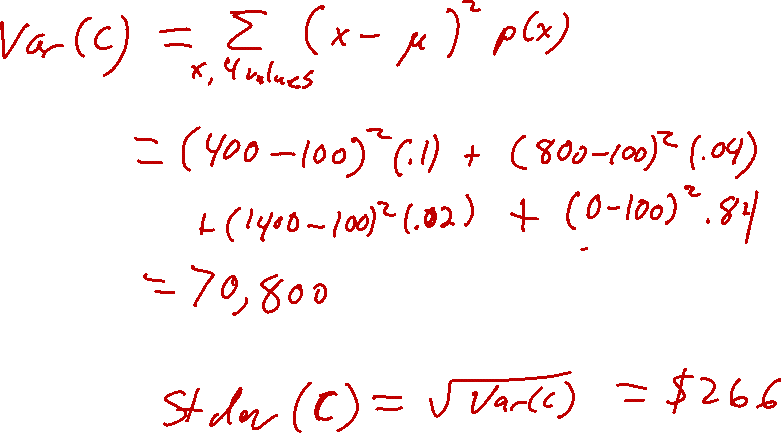 Var(C) = Σ (x - μ)² p(x)
x, 4 values
= (400 - 100)² (.1) + (800 - 100)² (.04)
+ (1400 - 100)² (.02) + (0 - 100)² .84
= 70,800
Stdev (C) = √Var(C) = $266